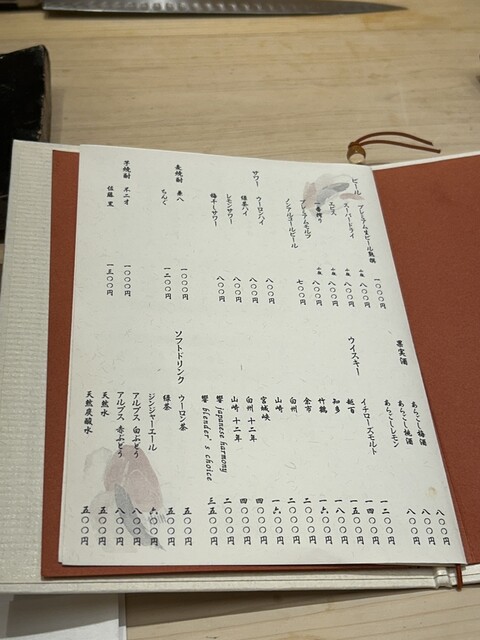 ビール
プレミアム生ビール 熟撰 一〇〇〇円
スーパードライ 小瓶 八〇〇円
ヱビス 小瓶 八〇〇円
一番搾り 小瓶 八〇〇円
プレミアムモルツ 小瓶 八〇〇円
ノンアルコールビール 七〇〇円
サワー
ウーロンハイ 八〇〇円
緑茶ハイ 八〇〇円
レモンサワー 八〇〇円
梅干しサワー 八〇〇円
麦焼酎 兼八 一〇〇〇円
ちんぐ 一二〇〇円
芋焼酎 不二才 一〇〇〇円
佐藤 黒 一三〇〇円
果実酒
あらごし梅酒 八〇〇円
あらごし桃酒 八〇〇円
あらごしレモン 八〇〇円
ウイスキー
イチローズモルト 一二〇〇円
越百 一四〇〇円
知多 一五〇〇円
竹鶴 一八〇〇円
余市 一六〇〇円
白州 二〇〇〇円
山崎 二〇〇〇円
宮城峡 一六〇〇円
白州 十二年 四〇〇〇円
山崎 十二年 四〇〇〇円
響 Japanese harmony 二〇〇〇円
響 blender's choice 三五〇〇円
ソフトドリンク
ウーロン茶 五〇〇円
緑茶 五〇〇円
ジンジャーエール 六〇〇円
アルプス 白ぶどう 八〇〇円
アルプス 赤ぶどう 八〇〇円
天然水 五〇〇円
天然炭酸水 五〇〇円